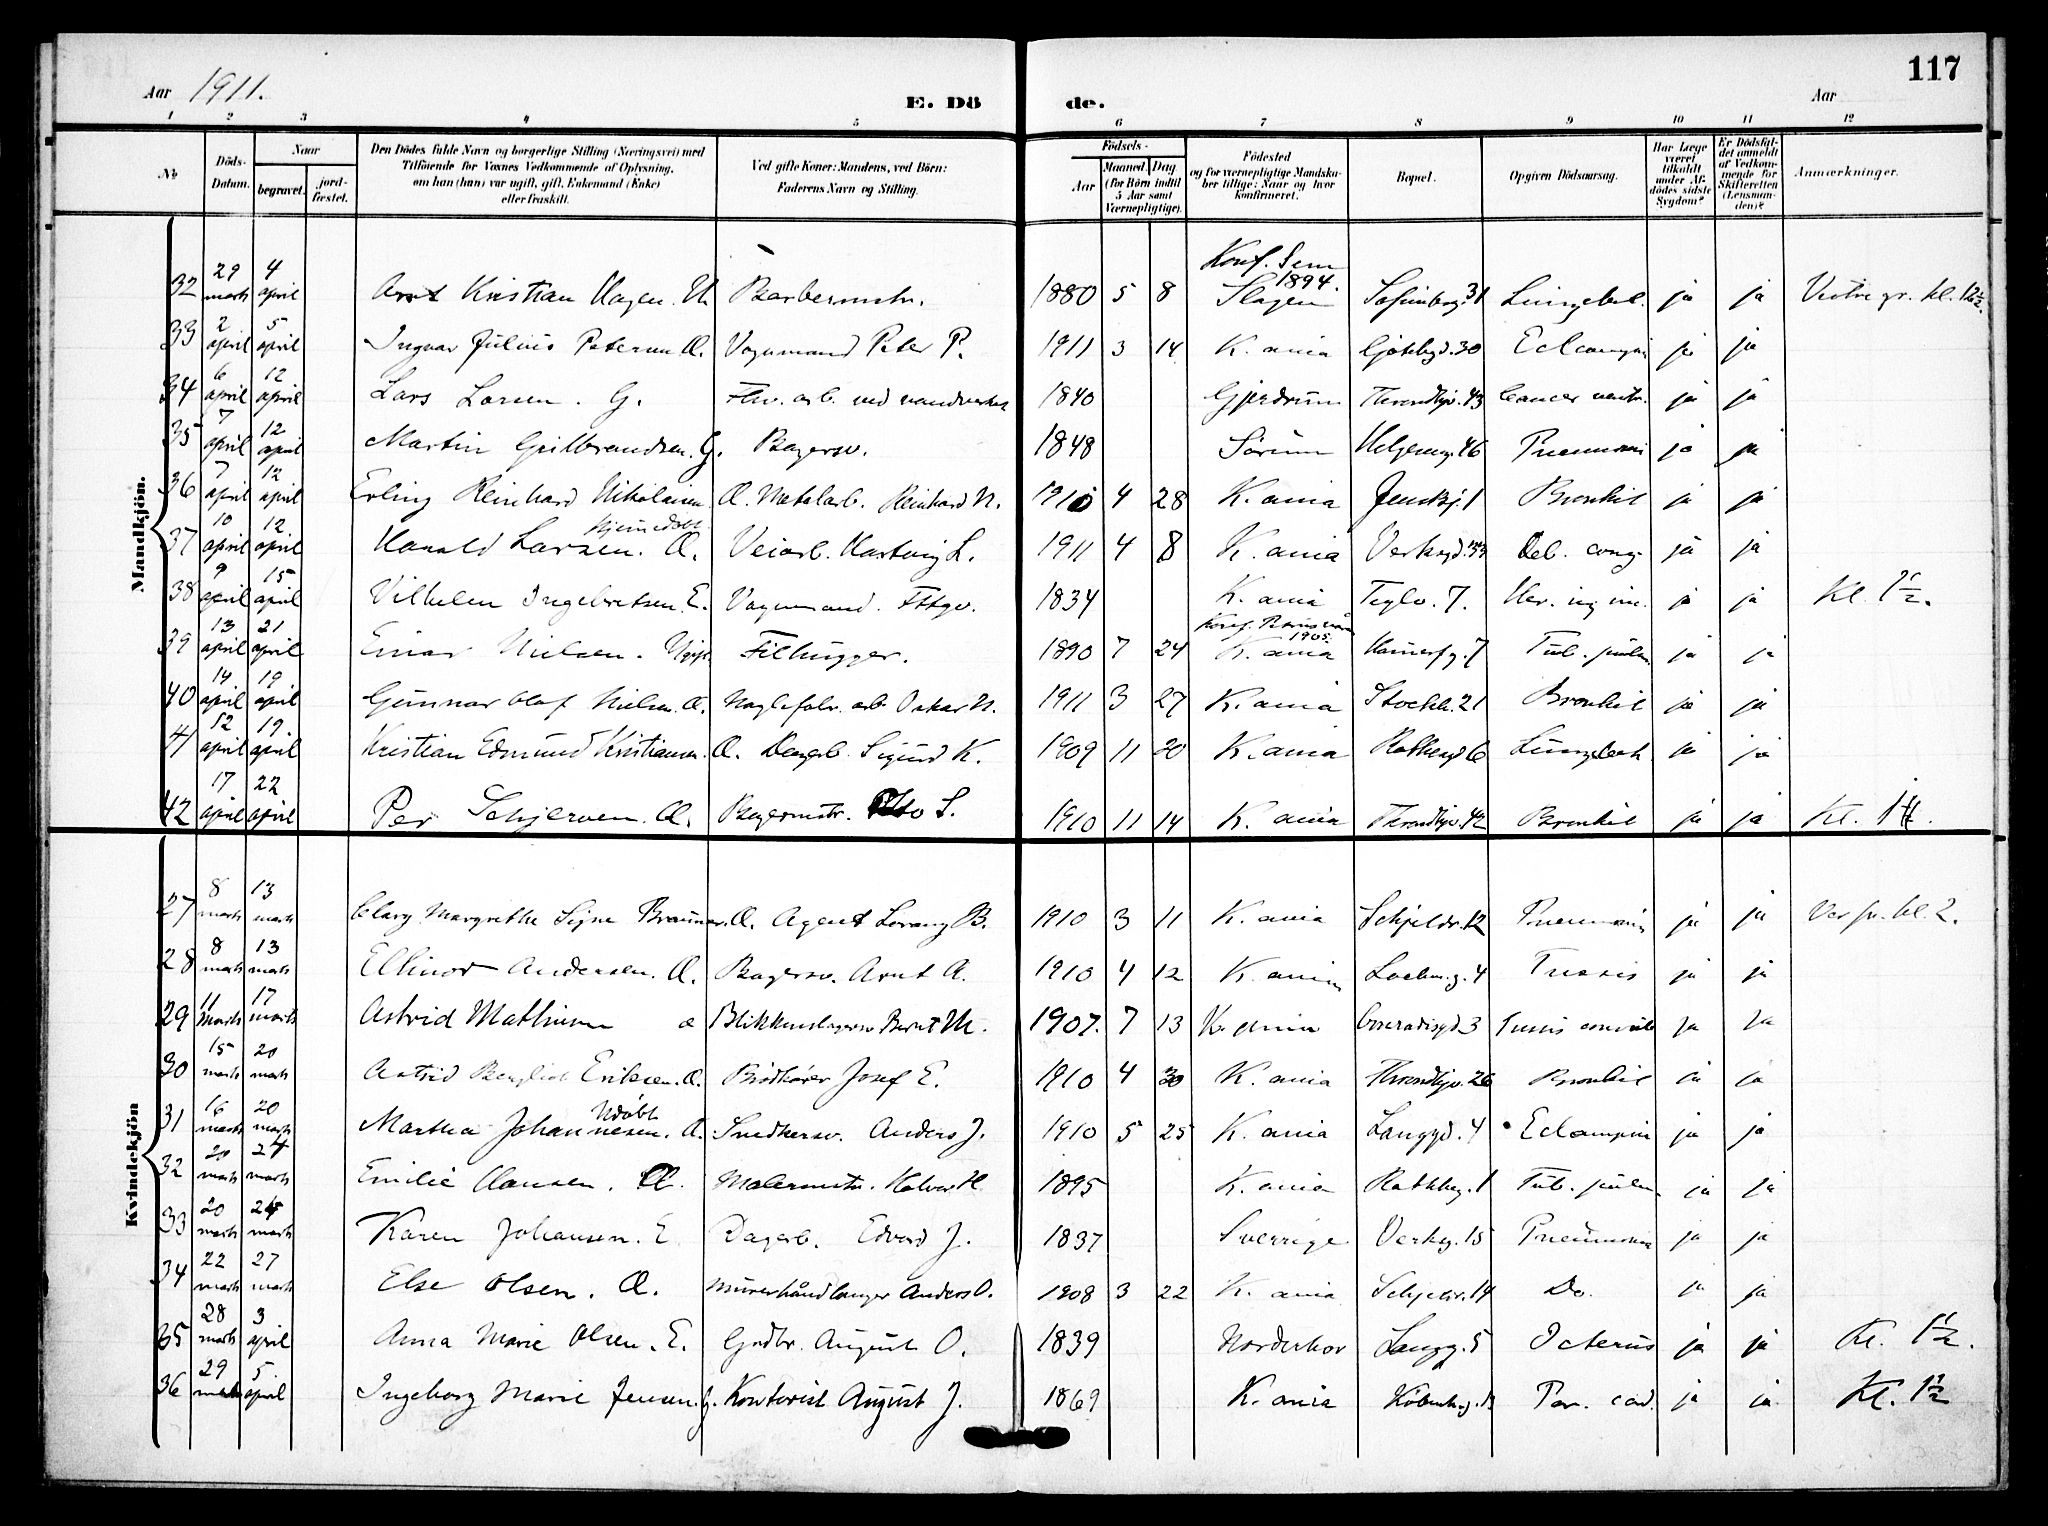 117
Aar 1911.
E. Dö de.
Aar
1 2 3 4 5 6 7 8 9 10 11 12
No
Döds-Datum.
Naar
begravet.
jord-fæstet.
Den Dödes fulde Navn og borgerlige Stilling (Næringsvei) med Tilföiende for Voxnes Vedkommende af Oplysning, om han (hun) var ugift, gift, Enkemand (Enke) eller fraskilt.
Ved gifte Koner: Mandens, ved Börn: Faderens Navn og Stilling.
Födsels-
Aar
Maaned. Dag
(for Börn indtil 5 Aar samt Værnepligtige).
Födested og for værnepligtige Mandskaber tillige: Naar og hvor konfirmeret.
Bopæl.
Opgiven Dödsaarsag.
Har Læge været tilkaldt under Afdödes sidste Sygdom?
Er Dödsfaldet anmeldt af Vedkommende for Skifteretten (Lensmanden)?
Anmærkninger.
Mandkjön.
32 29 marts 4 april Arnt Kristian Hagen. U. Barbermstr. 1880 5 8 Konf. Sem 1894. Slagen Sofienbg. 31 ja ja Vestre gr. kl. 12½.
33 2 april 5 april Ingvar Julius Petersen Æ. Vognmand Peter P. 1911 3 14 K. ania Gjötebgd. 30 Eclampsi ja ja
34 6 april 12 april Lars Larsen. G. Fhv. arb. ved vandverket 1840 Gjerdrum Throndhjv. 43 Cancer ventr. ja ja
35 7 april 12 april Martin Gulbrandsen. G. Bagersv. 1848 Sörum Helgesensg. 46 Pneumoni ja ja
36 7 april 12 april Erling Reinhard Nikolaisen Æ. Metalarb. Reinhard N. 1910 4 28 K. ania 1 Bronkit ja ja
37 10 april 12 april Harald Larsen. hjemmedöbt Æ. Veiarb. Hartvig L. 1911 4 8 K. ania Verksgd. 33 Deb. cong. ja ja
38 9 april 15 april Vilhelm Ingebretsen. E. Vognmand. 1834 K. ania Teglv. 7. Her. ing. inc. ja ja Kl. 1½.
39 13 april 21 april Einar Nielsen. Ugift Filhugger. 1890 7 24 Konf. 1905. K. ania Hammerfg. 7 Tub. pulm. ja ja
40 14 april 19 april Gunnar Olaf Nielsen. Æ. Naglefabr. arb. Oskar N. 1911 3 27 K. ania Stockh. 21 Bronkit ja ja
41 12 april 19. april Kristian Edmund Kristiansen. Æ. Dagarb. Sigurd K. 1909 11 20 K. ania Rathkesgd 6 ja ja
42 17 april 22 april Per Schjerven. Æ. Bagermstr. Otto S. 1910 11 14 K. ania Throndhjv. 42 Bronkit ja ja Kl. 1
Kvindekjön
27 8 marts 13 marts Clary Margrethe Signe Brauner. Æ. Agent Lorang B. 1910 3 11 K. ania Schjeldr. 12 Pneumonia ja ja kl. 2.
28 8 marts 13 marts Ellinor Andersen. Æ. Bagersv. Arnt A. 1910 4 12 K. ania 4 Tussis ja ja
29 11 Marts 17 marts Astrid Mathisen æ Blikkenslagersv Bernt M. 1907. 7 13 K. ania Conradisgd. 3 Tussis convuls ja ja
30 15 marts 20 marts Astrid Bergliot Eriksen. Æ. Brödkjörer Josef E. 1910 4 30 K. ania Throndhjv. 26 Bronkit ja ja
31 16 marts 20 marts Martha Johannesen. Udöbt Æ. Snedkersv. Anders J. 1910 5 25 K. ania Langgd. 4 Eclampsia ja ja
32 20 marts 24 marts Emilie Hansen. Æ. Malermstr. Halvor H. 1895 K. ania Rathkeg. 1 Tub. pulm. ja ja
33 20 marts 24 marts Karen Johansen. E. Dagarb. Edvard J. 1837 Sverrige Verksg. 15 Pneumonia ja ja
34 22 marts 27 marts Else Olsen. Æ. Murerhåndlanger Anders O. 1908 3 22 K. ania Schjeldr. 14 Do. ja ja
35 28 marts 3 april Anna Marie Olsen. E. Grdbr. August O. 1839 Norderhov Langg. 5 Icterus ja ja Kl. 1½.
36 29 marts 5. april Ingeborg Marie Jensen. G. Kontorist August J. 1869 K. ania Par. cord. ja ja Kl. 1½